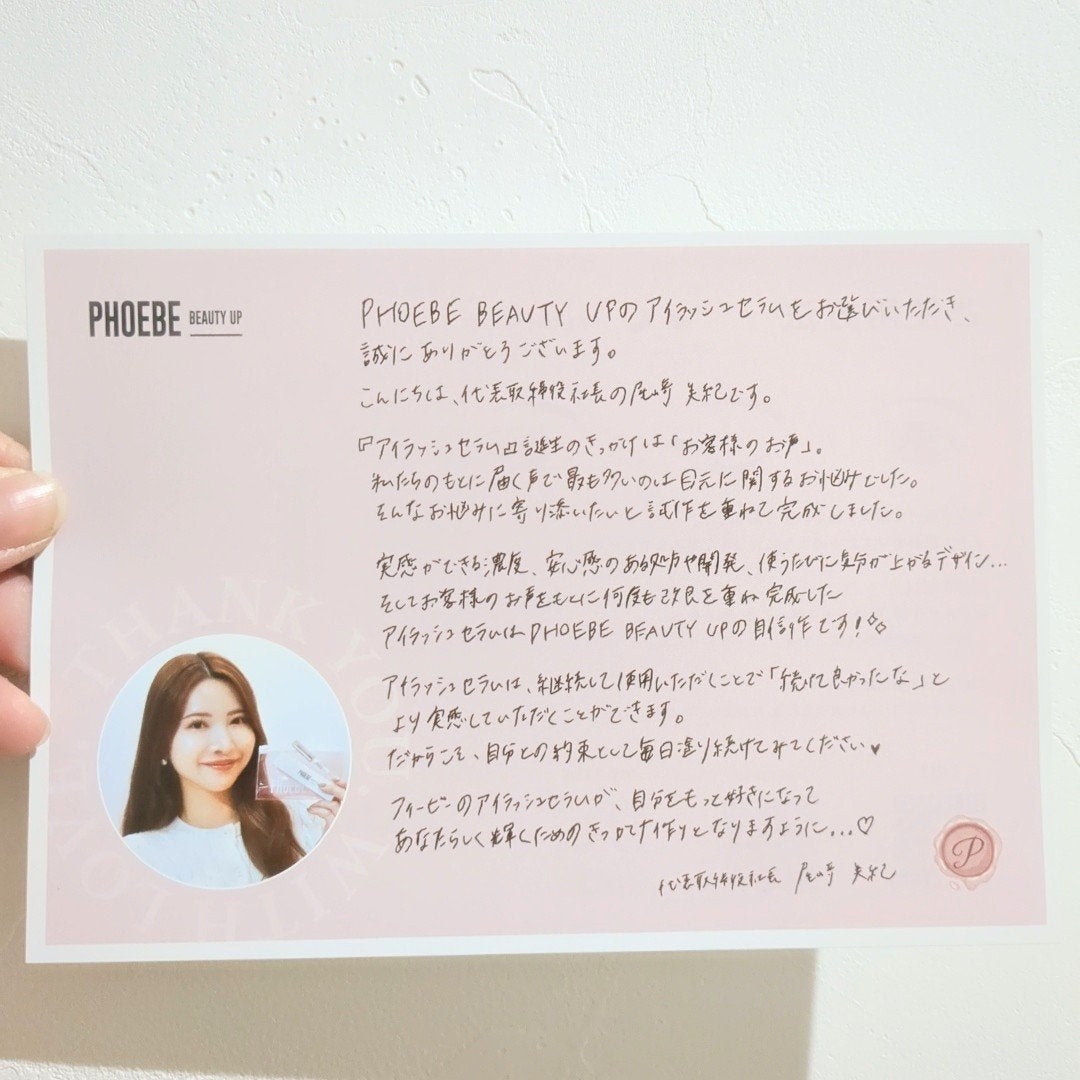 PHOEBE BEAUTY UP
PHOEBE BEAUTY UPのアイラッシュセラムをお選びいただき、
誠にありがとうございます。
こんにちは、代表取締役社長の尾﨑 美紀です。
『アイラッシュセラム』誕生のきっかけは「お客様のお声」。
私たちのもとに届く声で最も多いのは目元に関するお悩みでした。
そんなお悩みに寄り添いたいと試作を重ねて完成しました。
実感ができる濃度、安心感のある処方や開発、使うたびに気分が上がるデザイン...
そしてお客様のお声をもとに何度も改良を重ね完成した
アイラッシュセラムはPHOEBE BEAUTY UPの自信作です!
アイラッシュセラムは、継続して使用いただくことで「続けて良かったな」と
より実感していただくことができます。
だからこそ、自分との約束として毎日塗り続けてみてください♥
フィービーのアイラッシュセラムが、自分をもっと好きになって
あなたらしく輝くためのきっかけ作りとなりますように...♡
代表取締役社長 尾﨑 美紀
P
THANK YOU
WITH
PHOEBE